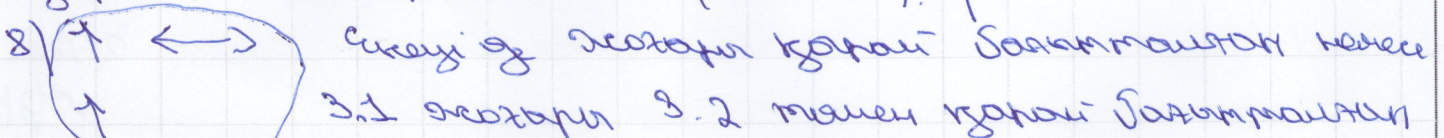 8) ↑ ↔ Екеуі де жоғары қарай бағытталған немесе
↑ 3.1 жоғары 3.2 төмен қарай бағытталған